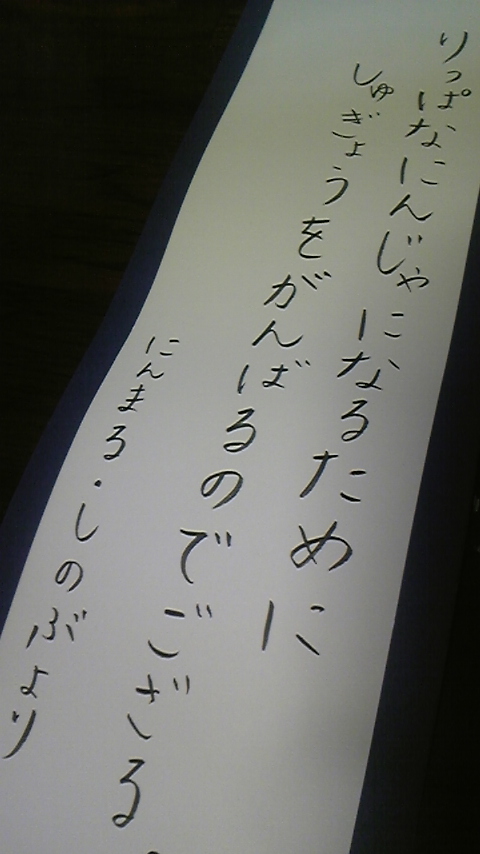 りっぱなにんじゃになるために
しゅぎょうをがんばるのでござる。
にんまる・しのぶより